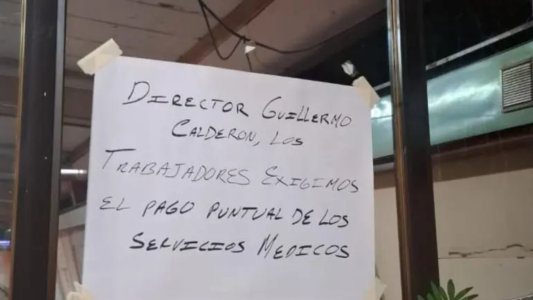 DIRECTOR GUILLERMO
CALDERON, LOS
TRABAJADORES EXIGIMOS
EL PAGO PUNTUAL DE LOS
SERVICIOS MEDICOS